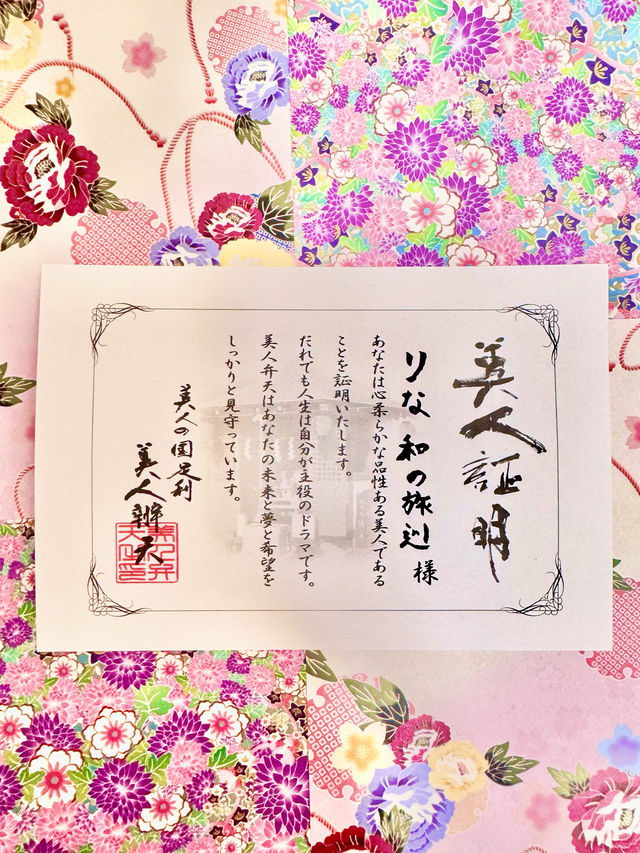 美人証明
りな 和の旅巡 様
あなたは心柔らかな品性ある美人である
ことを証明いたします。
だれでも人生は自分が主役のドラマです。
美人弁天はあなたの未来と夢と希望を
しっかりと見守っています。
美人の国足利
美人辨天